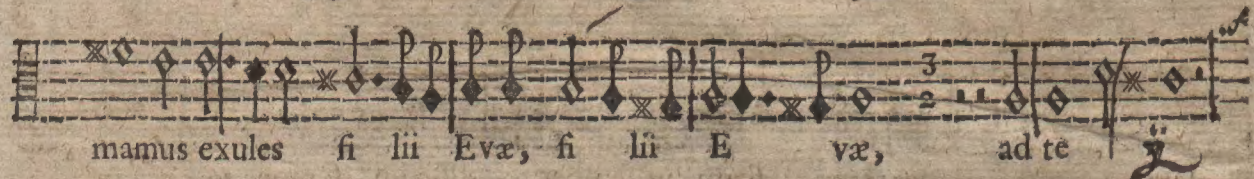 3
2
mamus exules fi lii Evæ, fi lii E væ, ad te ij